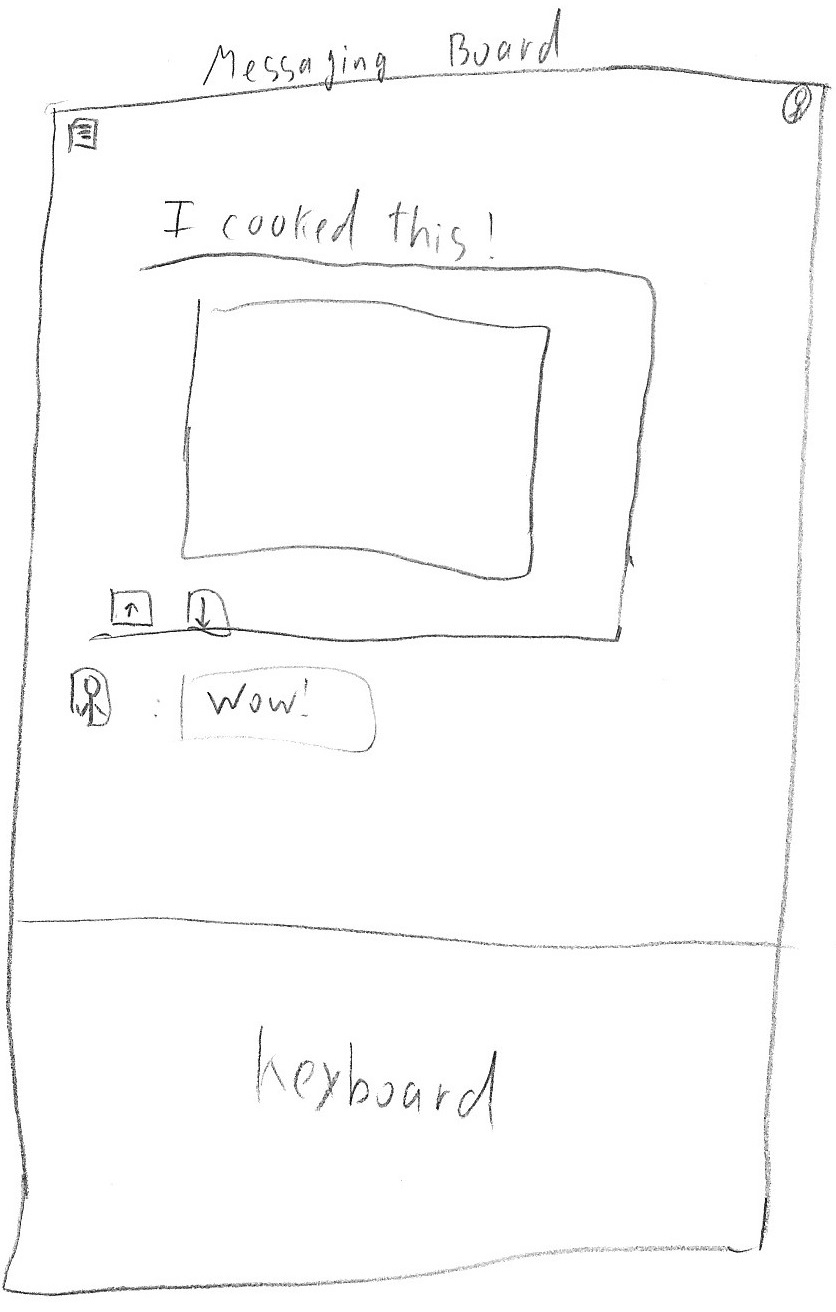 Messaging Board
I cooked this!
: Wow!
keyboard